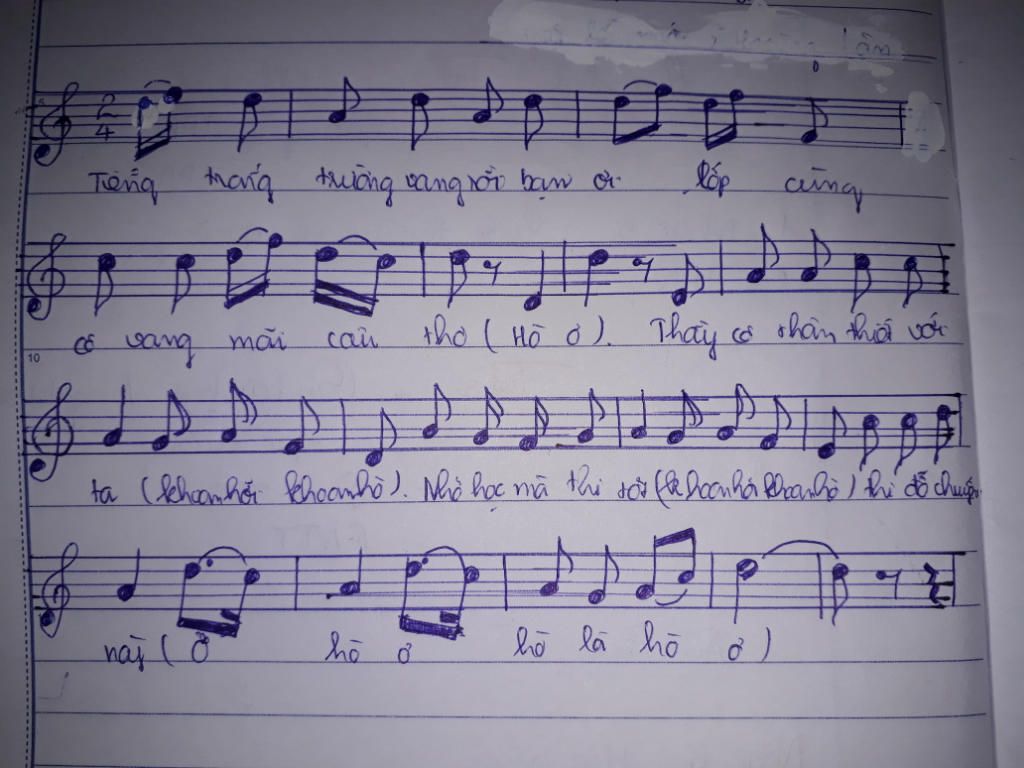 2 4
Tiếng trống trường vang rồi bạn ơi lớp cùng
cô vang mãi câu thơ (Hò ơ). Thầy cô thân thiết với
10
ta (khoan hỡi khoan hò). Nhờ học mà thi tốt (là khoan hỡi khoan hò) thi đỗ chuyến
này (Ơ hò ơ hò là hò ơ)